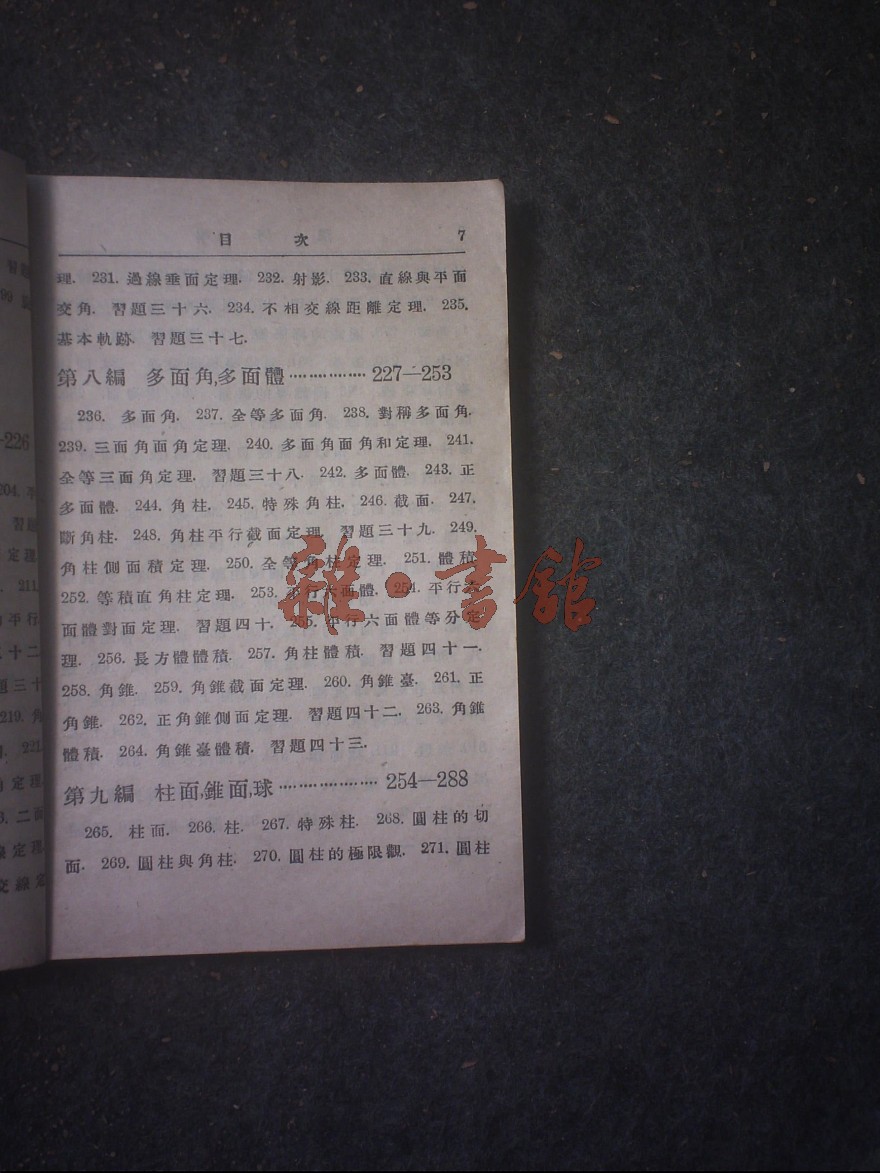 目 次 7
理. 231. 過線垂面定理. 232. 射影. 233. 直線與平面
交角. 習題三十六. 234. 不相交線距離定理. 235.
基本軌跡. 習題三十七.
第八編 多面角,多面體 …………… 227—253
236. 多面角. 237. 全等多面角. 238. 對稱多面角.
239. 三面角面角定理. 240. 多面角面角和定理. 241.
全等三面角定理. 習題三十八. 242. 多面體. 243. 正
多面體. 244. 角柱. 245. 特殊角柱. 246. 截面. 247.
斷角柱. 248. 角柱平行截面定理. 習題三十九. 249.
角柱側面積定理. 250. 全等角柱定理. 251. 體積.
252. 等積直角柱定理. 253. 平行六面體. 254. 平行六
面體對面定理. 習題四十. 255. 平行六面體等分定
理. 256. 長方體體積. 257. 角柱體積. 習題四十一.
258. 角錐. 259. 角錐截面定理. 260. 角錐臺. 261. 正
角錐. 262. 正角錐側面定理. 習題四十二. 263. 角錐
體積. 264. 角錐臺體積. 習題四十三.
第九編 柱面,錐面,球 ………………… 254—288
265. 柱面. 266. 柱. 267. 特殊柱. 268. 圓柱的切
面. 269. 圓柱與角柱. 270. 圓柱的極限觀. 271. 圓柱
雜·書館
-226
204. 平
習題
定理
211.
平行
十二
題三十
219. 角
221.
定理
二面
線定理
交線定